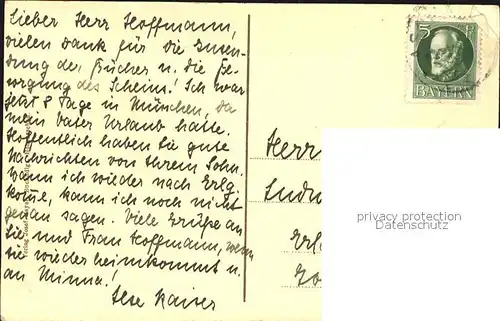 Lieber Herr Hoffmann,
vielen Dank für die Zusen-
dung der Bücher u. die Be-
sorgung des Scheins! Ich war
jetzt 8 Tage in München, da
mein Vater Urlaub hatte.
Hoffentlich haben Sie gute
Nachrichten von Ihrem Sohn.
Wann ich wieder nach Erlg.
komme, kann ich noch nicht
genau sagen. Viele Grüße an
Sie und Frau Hoffmann, wenn
sie wieder heimkommt u.
an Minna!
Ilse Kaiser
5 Pf
BAYERN
Herr
Ludw
Erl
privacy protection
Datenschutz